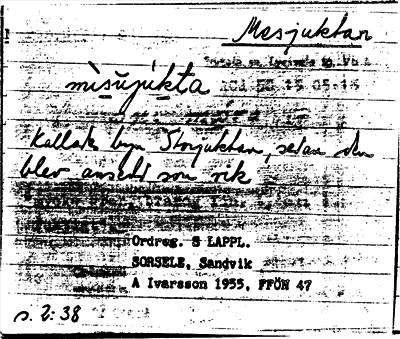 Mesjuktan
misujukta
Kallade byn Storjuktan, sedan den
blev ansedd som rik
Ordreg. S LAPPL.
SORSELE, Sandvik
A Ivarsson 1955, FFÖN 47
s. 2:38